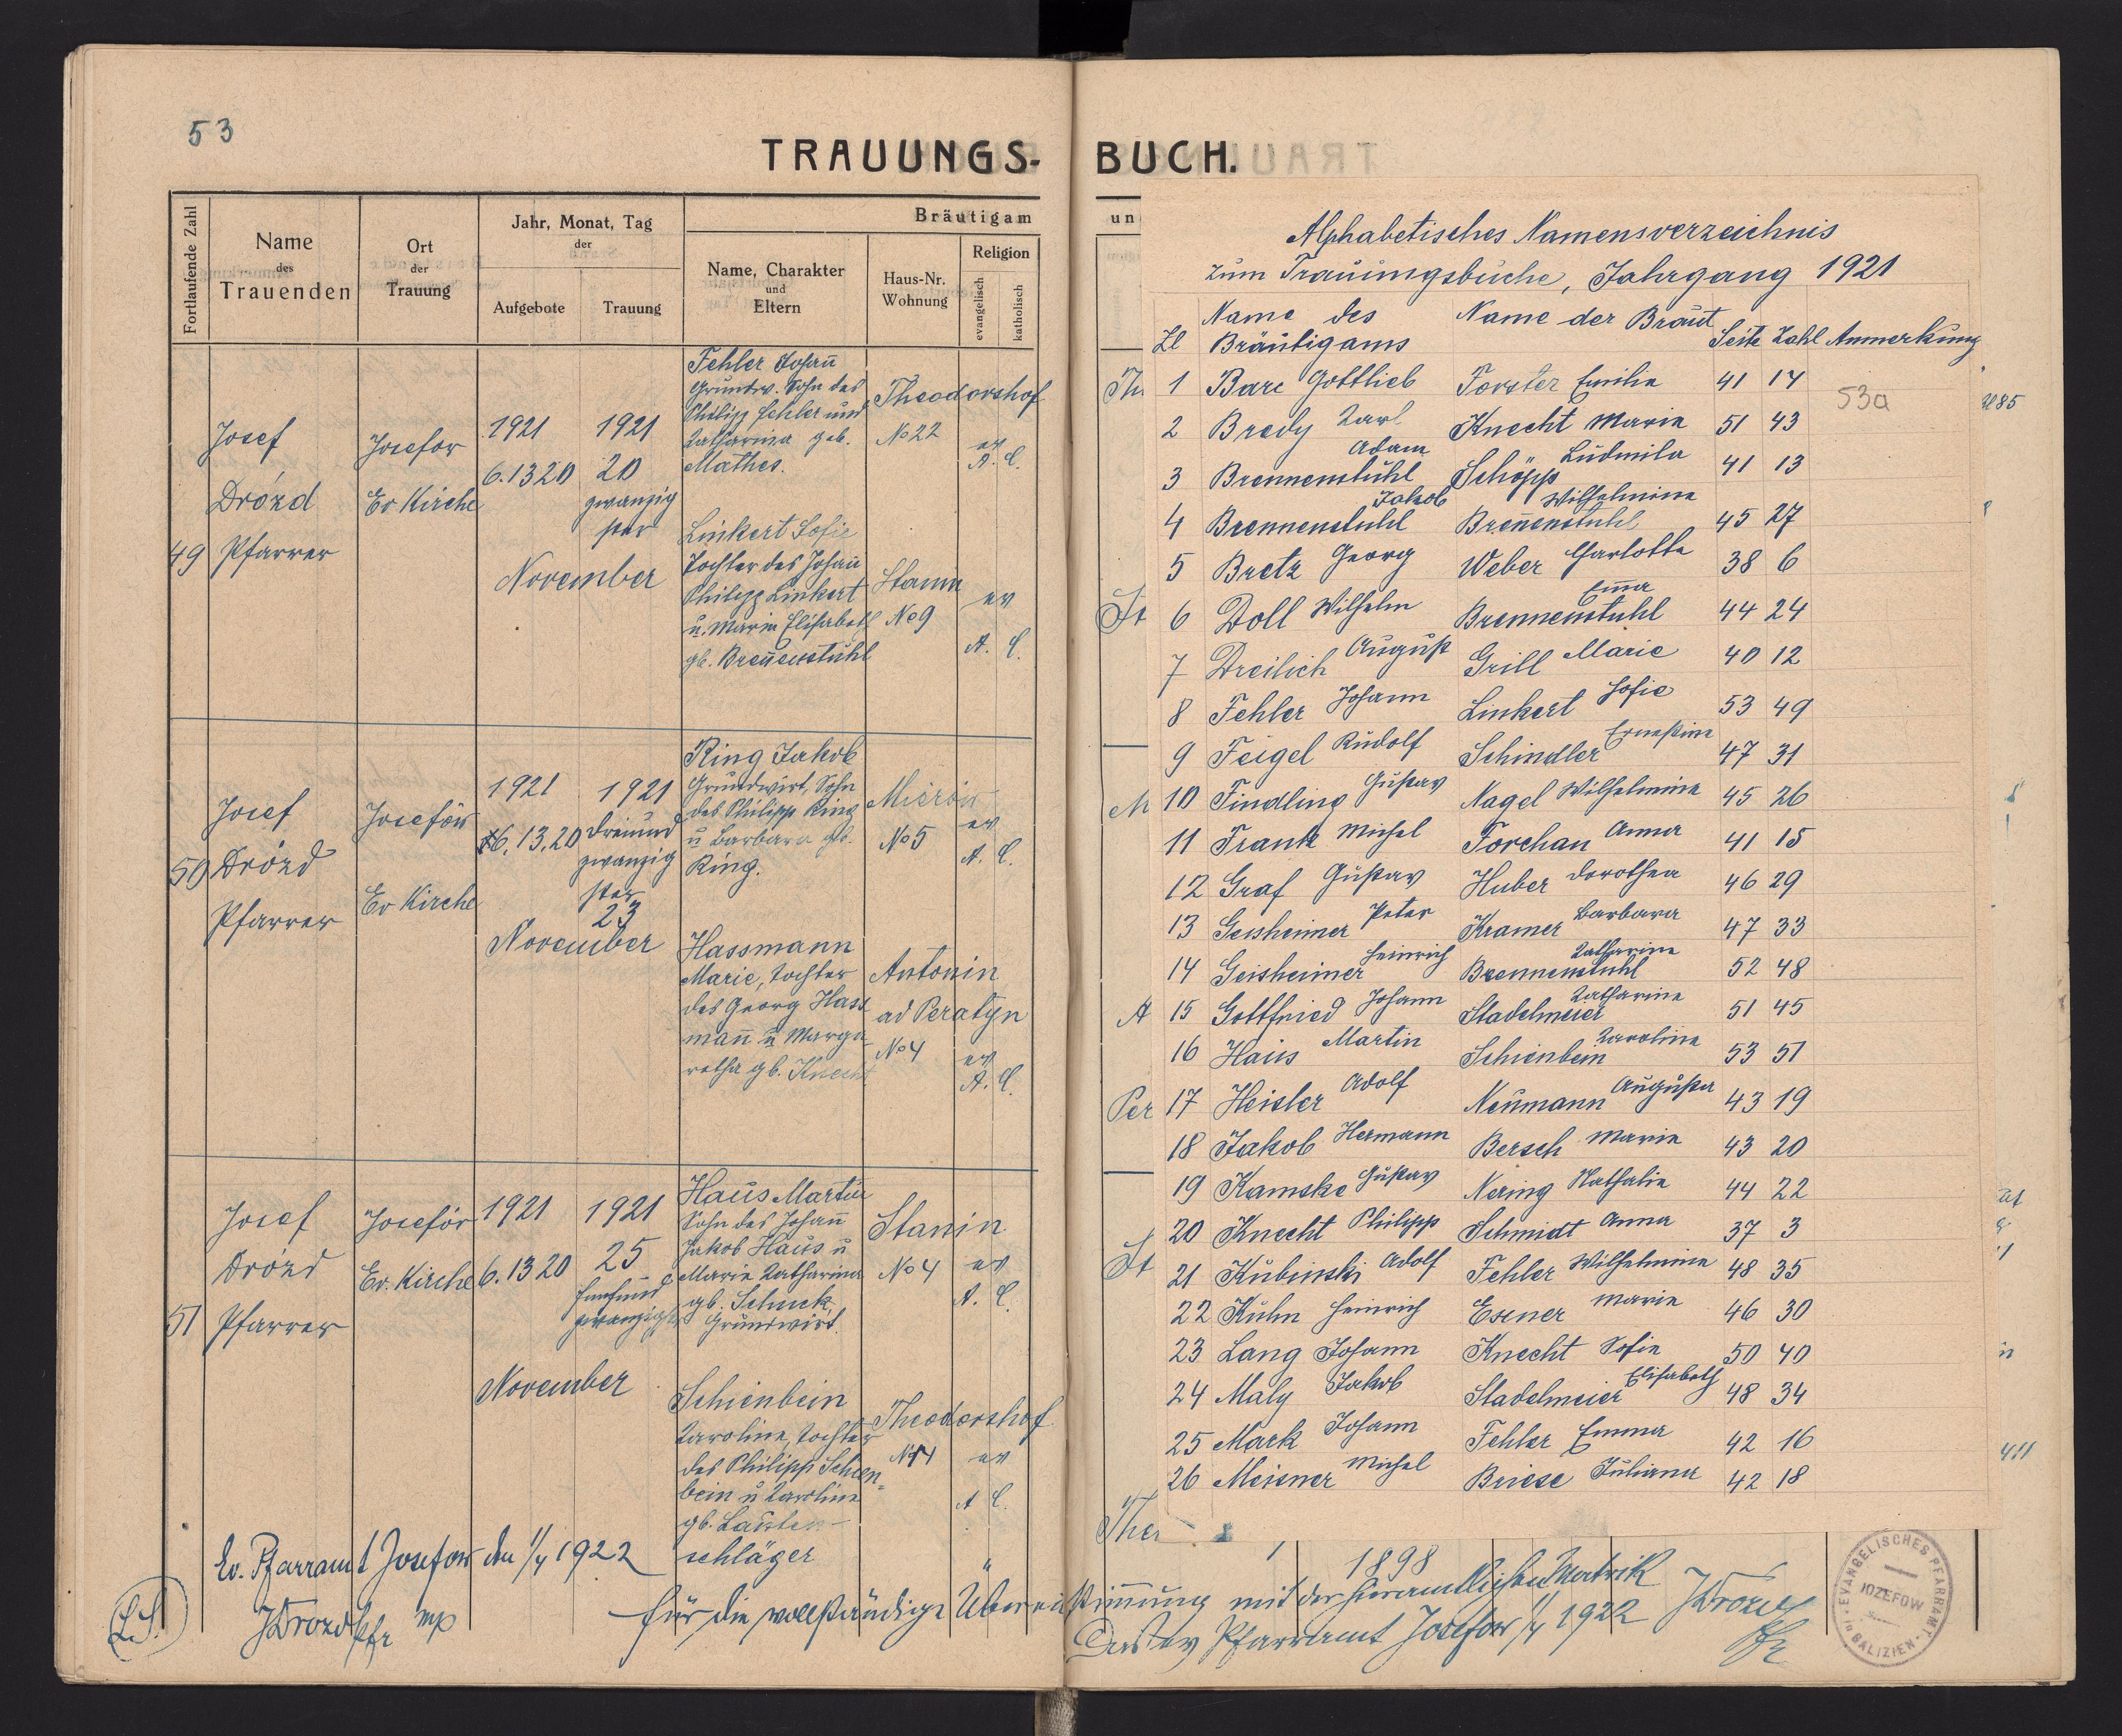 53
TRAUUNGS-
Fortlaufende Zahl
Name
des
Trauenden
Ort
der
Trauung
Jahr, Monat, Tag
der
Aufgebote
Trauung
Bräutigam
Name, Charakter
und
Eltern
Haus-Nr.
Wohnung
Religion
evangelisch
katholisch
49
Josef
Drózd
Pfarrer
Josefow
Ev Kirche
1921
6. 13 20
1921
20
zwanzig
ster
November
Fehler Johañ
Grundw. Sohn des
Philipp Fehler und
Katharina geb.
Mathes.
Theodorshof
No 22
ev
A. C.
Linkert Sofie
Tochter des Johañ
Philipp Linkert
u. Marie Elisabeth
gb. Breñenstuhl
Stanin
No 9
ev
A. C.
50
Josef
Drózd
Pfarrer
Josefów
Ev Kirche
1921
6. 13. 20
1921
dreiund
zwanzig
ster
23
November
Ring Jakob
Grundwirt, Sohn
des Philipp Ring
u Barbara gb.
Ring.
Mierów
No 5
ev
A. C.
Hassmann
Marie, Tochter
des Georg Hass
mañ u Marga-
retha gb. Knecht
Antonin
ad Peratyn
No 4
ev
A. C.
51
Josef
Drózd
Pfarrer
Josefów
Ev. Kirche
1921
6. 13 20
1921
25
fünfund
zwanzigst
November
Haus Martin
Sohn des Johañ
Jakob Haus u
Marie Katharina
gb. Schuck,
Grundwirt.
Stanin
No 4
ev
A. C.
Schienbein
Karoline, Tochter
des Philipp Schien=
bein u Karoline
gb. Lauten-
schläger
Theodorshof
No 14
ev
A C.
Ev. Pfarramt Josefow den 1/4 1922
L.S.
JDrozd Pfr mp
BUCH.
un
Alphabetisches Namensverzeichnis
zum Trauungsbuche, Jahrgang 1921
Zl Name des Bräutigams Name der Braut Seite Zahl Anmerkung
1 Barc Gottlieb Forster Emilie 41 17
53a
2 Bredy Karl Knecht Marie 51 43
3 Brennenstuhl Adam Schöpp Ludmila 41 13
4 Brennenstuhl Jakob Breñenstuhl Wilhelmine 45 27
5 Bretz Georg Weber Charlotte 38 6
6 Doll Wilhelm Brennenstuhl Em̃a 44 24
7 Dreilich August Grill Marie 40 12
8 Fehler Johann Linkert Sofie 53 49
9 Feigel Rudolf Schindler Ernestine 47 31
10 Findling Gustav Nagel Wilhelmine 45 26
11 Frank Michel Forchan Anna 41 15
12 Graf Gustav Huber Dorothea 46 29
13 Geisheimer Peter Kramer Barbara 47 33
14 Geisheimer Heinrich Brennenstuhl Katharina 52 48
15 Gottfried Johann Stadelmeier Katharina 51 45
16 Haus Martin Schienbein Karoline 53 51
17 Heisler Adolf Neumann Augusta 43 19
18 Jakob Hermann Bersch Marie 43 20
19 Kamske Gustav Nering Nathalie 44 22
20 Knecht Philipp Schmidt Anna 37 3
21 Kubinski Adolf Fehler Wilhelmine 48 35
22 Kuhn Heinrich Esener Marie 46 30
23 Lang Johann Knecht Sofie 50 40
24 Maly Jakob Stadelmeier Elisabeth 48 34
25 Mark Johann Fehler Emma 42 16
26 Meisner Michel Briese Juliana 42 18
1898
für die vollständige Übereinstim̃ung mit der hieramtlichen Matrik
Das ev Pfarramt Josefow 1/4 1922 JDrozd
Pfr
EVANGELISCHES PFARRAMT
JOZEFOW
in GALIZIEN